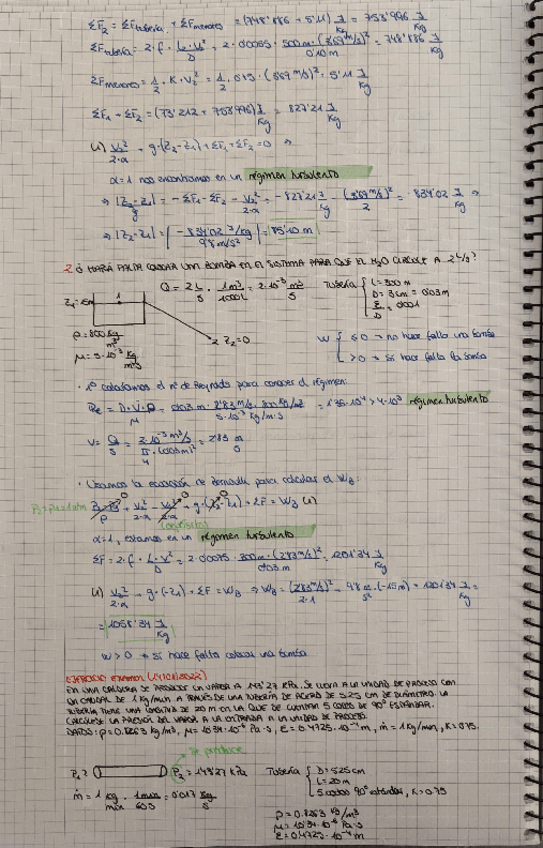 ΣF₂ = ΣFtubería + ΣFmenores = (748'886 + 5'11) J/Kg = 753'996 J/Kg
ΣFtubería = 2·f·L·V²/D = 2·0'0055·500m·(3'69 m/s)²/0'10m = 748'886 J/Kg
ΣFmenores = 1/2·K·V₂² = 1/2·0'75·(3'69 m/s)² = 5'11 J/Kg
ΣF₁ + ΣF₂ = (73'212 + 753'996) J/Kg = 827'21 J/Kg
V₂²/2·α + g·(Z₂-Z₁) + ΣF₁ + ΣF₂ = 0 ⇒
α=1 nos encontramos en un régimen turbulento
⇒ |Z₂-Z₁| = -ΣF₁ - ΣF₂ - V₂²/2·α = -827'21 J/Kg - (3'69 m/s)²/2 = -834'02 J/Kg ⇒
⇒ |Z₂-Z₁| = |-834'02 J/Kg / 9'8 m/s²| = 85'10 m
2 ¿HARÁ FALTA COLOCAR UNA BOMBA EN EL SISTEMA PARA QUE EL H₂O CIRCULE A 2 L/s?
Q = 2 L/s · 1m³/1000L = 2·10⁻³ m³/s
Tubería L = 300m
D = 3cm = 0'03m
Z₁ = 15m
1
2 Z₂ = 0
ρ = 800 Kg/m³
μ = 5·10⁻³ Kg/m·s
W ≤ 0 → no hace falta una bomba
> 0 → sí hace falta la bomba
· 1º calculamos el nº de Reynolds para conocer el régimen:
Re = D·V·ρ/μ = 0'03m · 2'83 m/s · 800 Kg/m³ / 5·10⁻³ Kg/m·s = 1'36·10⁴ > 4·10³ régimen turbulento
V = Q/S = 2·10⁻³ m³/s / π/4·(0'03m)² = 2'83 m/s
· Usamos la ecuación de Bernoulli para calcular el WB:
P₂ = P₁ = 1 atm
P₂-P₁/ρ + V₂²/2·α - V₁²/2·α + g·(Z₂-Z₁) + ΣF = WB
α=1, estamos en un régimen turbulento
ΣF = 2·f·L·V²/D = 2·0'0075·300m·(2'83 m/s)²/0'03m = 1201'34 J/Kg
V₂²/2·α + g·(-Z₁) + ΣF = WB ⇒ WB = (2'83 m/s)²/2·1 + 9'8 m/s²·(-15m) + 1201'34 J/Kg =
= 1058'34 J/Kg
W > 0 → sí hace falta colocar una bomba
EJERCICIO EXAMEN
EN UNA CALDERA SE PRODUCE UN VAPOR A 143'27 KPa. SE LLEVA A LA UNIDAD DE PROCESO CON
UN CAUDAL DE 1 Kg/min, A TRAVÉS DE UNA TUBERÍA DE ACERO DE 5'25 CM DE DIÁMETRO. LA
TUBERÍA TIENE UNA LONGITUD DE 20 m EN LA QUE SE CUENTAN 5 CODOS DE 90º ESTÁNDAR.
CALCÚLESE LA PRESIÓN DEL VAPOR A LA ENTRADA A LA UNIDAD DE PROCESO.
DATOS: ρ = 0'8263 Kg/m³, μ = 10'34·10⁻⁶ Pa·s, ε = 0'4725·10⁻⁴ m, ṁ = 1 Kg/min, K = 0'75.
se produce
P₁?
P₂ = 143'27 KPa
Tubería D = 5'25cm
L = 20m
5 codos 90º estándar, K = 0'75
ṁ = 1 Kg/min · 1min/60s = 0'017 Kg/s
ρ = 0'8263 Kg/m³
μ = 10'34·10⁻⁶ Pa·s
ε = 0'4725·10⁻⁴ m